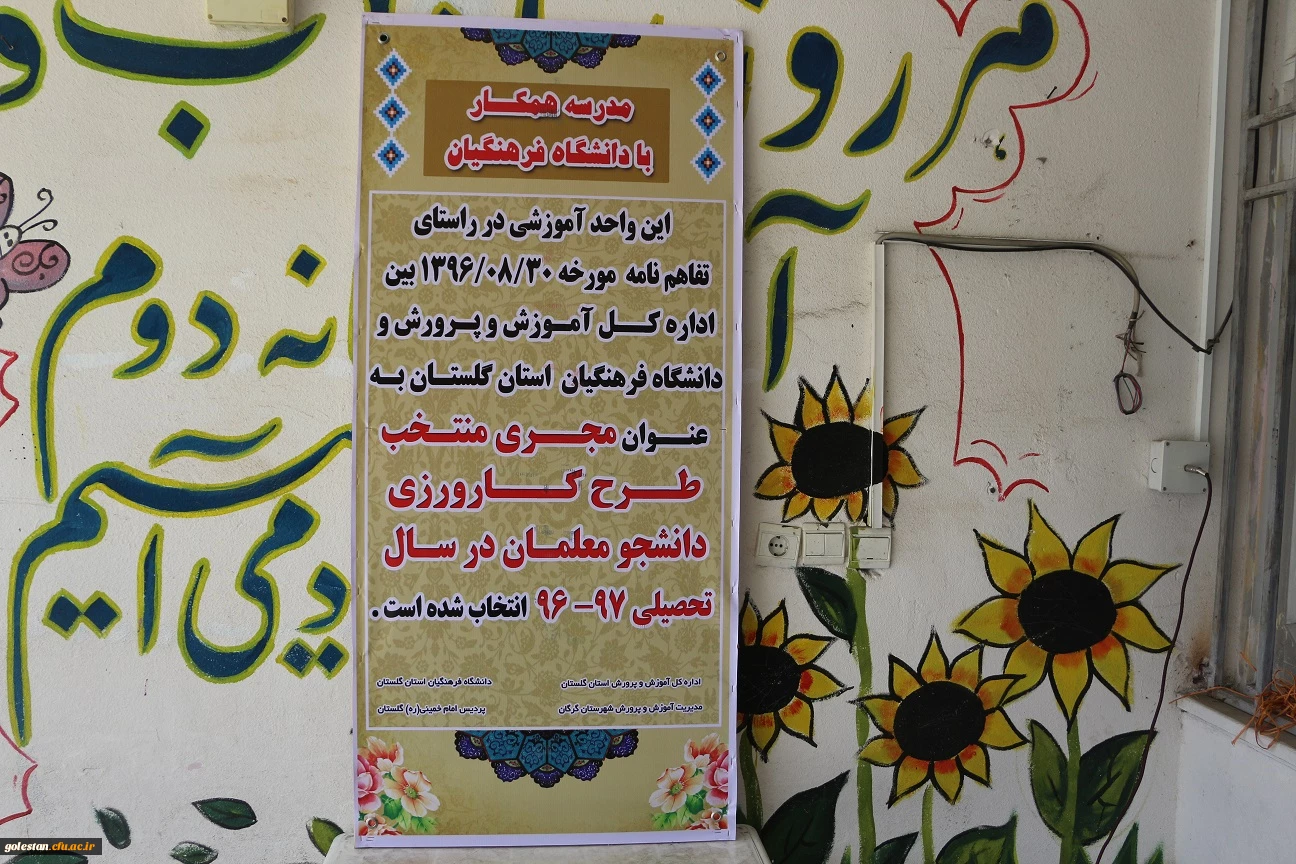 مدرسه همکار
با دانشگاه فرهنگیان
این واحد آموزشی در راستای
تفاهم نامه مورخه ۱۳۹۶/۰۸/۳۰ بین
اداره کل آموزش و پرورش و
دانشگاه فرهنگیان استان گلستان به
عنوان مجری منتخب
طرح کارورزی
دانشجو معلمان در سال
تحصیلی ۹۷-۹۶ انتخاب شده است.
اداره کل آموزش و پرورش استان گلستان
مدیریت آموزش و پرورش شهرستان گرگان
دانشگاه فرهنگیان استان گلستان
پردیس امام خمینی(ره) گلستان
دوم
آ
golestan.cfu.ac.ir